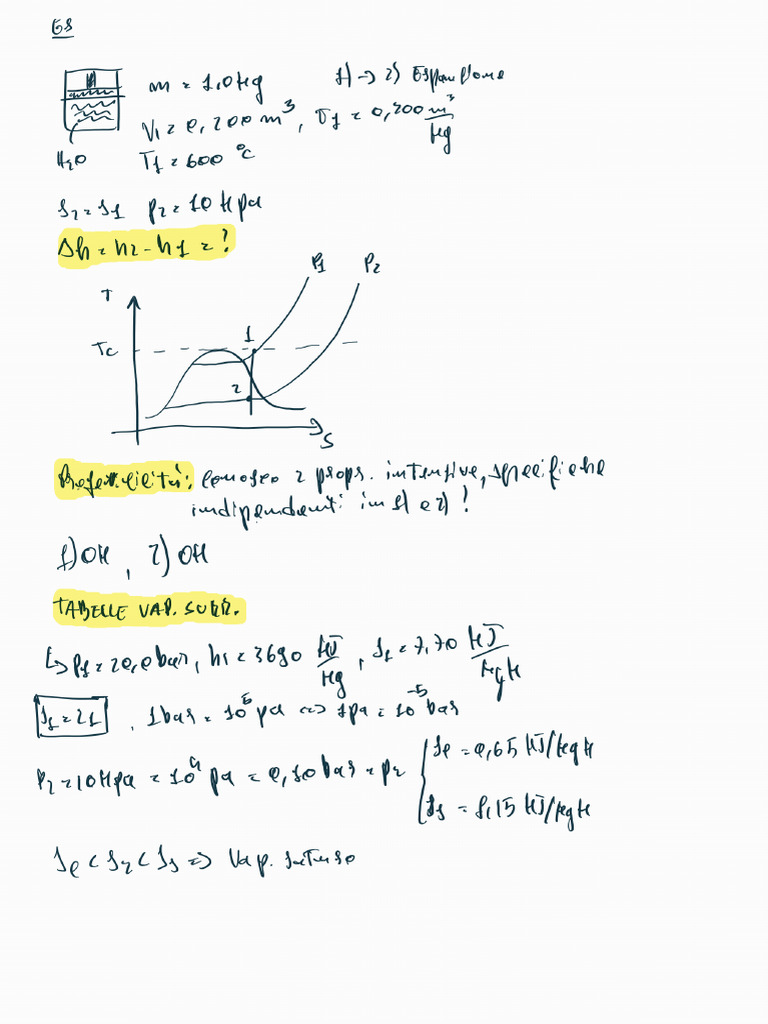 ES
m = 1,0 kg    1) → 2) Espansione
V1 = 0,200 m³, v1 = 0,200 m³/kg
H2O    T1 = 600 °C
s2 = s1    p2 = 10 kpa
Δh = h2 - h1 = ?
P1    P2
T
1
Tc
2
S
conosco 2 propr. intensive, specifiche
indipendenti in 1) e 2)!
1) OK, 2) OK
TABELLE VAP. SURR.
↳ P1 = 20,0 bar, h1 = 3690 kJ/kg, s1 = 7,70 kJ/kgK
, 1bar = 10⁵ pa ⇔ 1pa = 10⁻⁵ bar
P2 = 10 kpa = 10⁴ pa = 0,10 bar = p2 { sl = 0,65 kJ/kgK
ss = 8,15 kJ/kgK
sl < s2 < ss ⇒ Vap. saturo